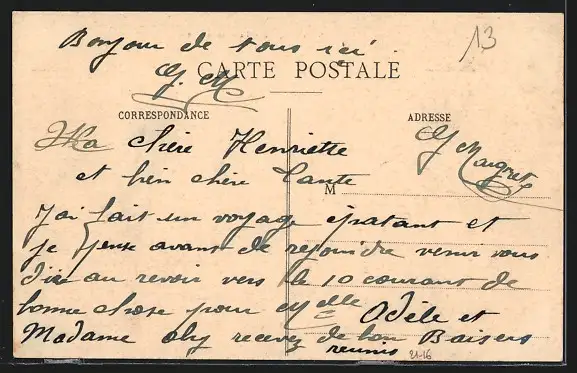 Bonjour de tous ici
G. M
13
CARTE POSTALE
CORRESPONDANCE
ADRESSE
Ma chère Henriette
et bien chère Tante
G Maigret
M
J'ai fait un voyage épatant et
je pense avant de rejoindre venir vous
dire au revoir vers le 10 courant de
bonne chose pour Melle Odèle et
Madame recevez de bon Baisers
reunis
21-16